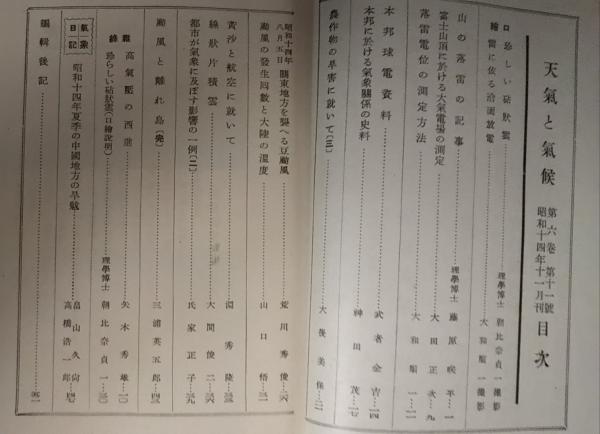 天氣と氣候 第六卷 第十一號 昭和十四年十一月刊 目次
口繪 珍らしい砧狀雲 理學博士 朝比奈貞一撮影
雷に依る沿面放電 大和順一撮影
山の落雷の記事 理學博士 藤原咲平…一
富士山頂に於ける大氣電場の測定 大田正次…九
落雷電位の測定方法 大和順一…一二
本邦球電資料 武者金吉…一四
本邦に於ける氣象關係の史料 神田茂…一七
農作物の旱害に就いて〔三〕 大後美保…二一
昭和十四年八月五日 關東地方を襲へる豆颱風 荒川秀俊…二六
颱風の發生囘數と大陸の溫度 山口悟…三一
黃沙と航空に就いて 淵秀隆…三三
線狀片積雲 大間俊二…三六
都市が氣象に及ぼす影響の一例〔二〕 氏家正子…三九
颱風と離れ島〔完〕 三浦英五郎…四三
雜錄 高氣壓の西 矢木秀雄…二〇
珍らしい砧狀雲(口繪說明) 理學博士 朝比奈貞一…三〇
氣象日記 昭和十四年夏季の中國地方の旱魃 畠山久尙 高橋浩一郎…四七
編輯後記